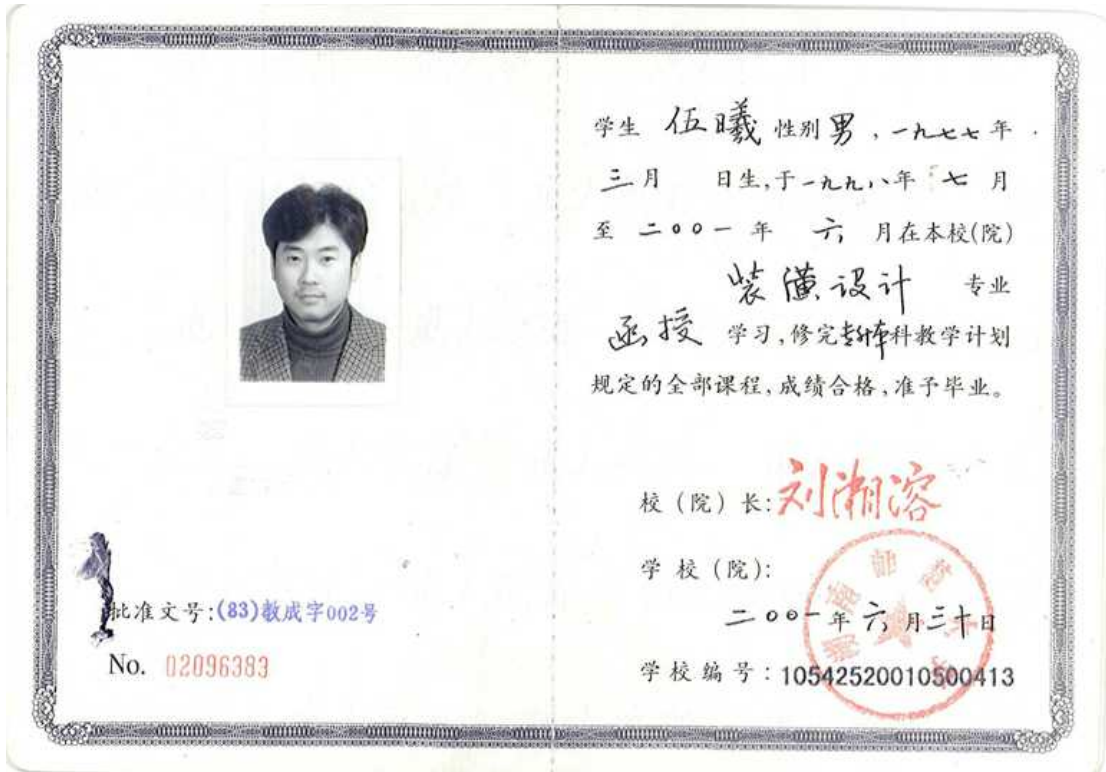 批准文号:(83)教成字002号
No. 02096383
学生 伍曦 性别 男 , 一九七七 年
三 月 日生,于 一九九八 年 七 月
至 二〇〇一 年 六 月在本校(院)
装潢设计 专业
函授 学习,修完 专升本 科教学计划
规定的全部课程,成绩合格,准予毕业。
校(院)长: 刘湘溶
学校(院):
湖南师范大学
二〇〇一 年 六 月 三十 日
学校编号:10542520010500413